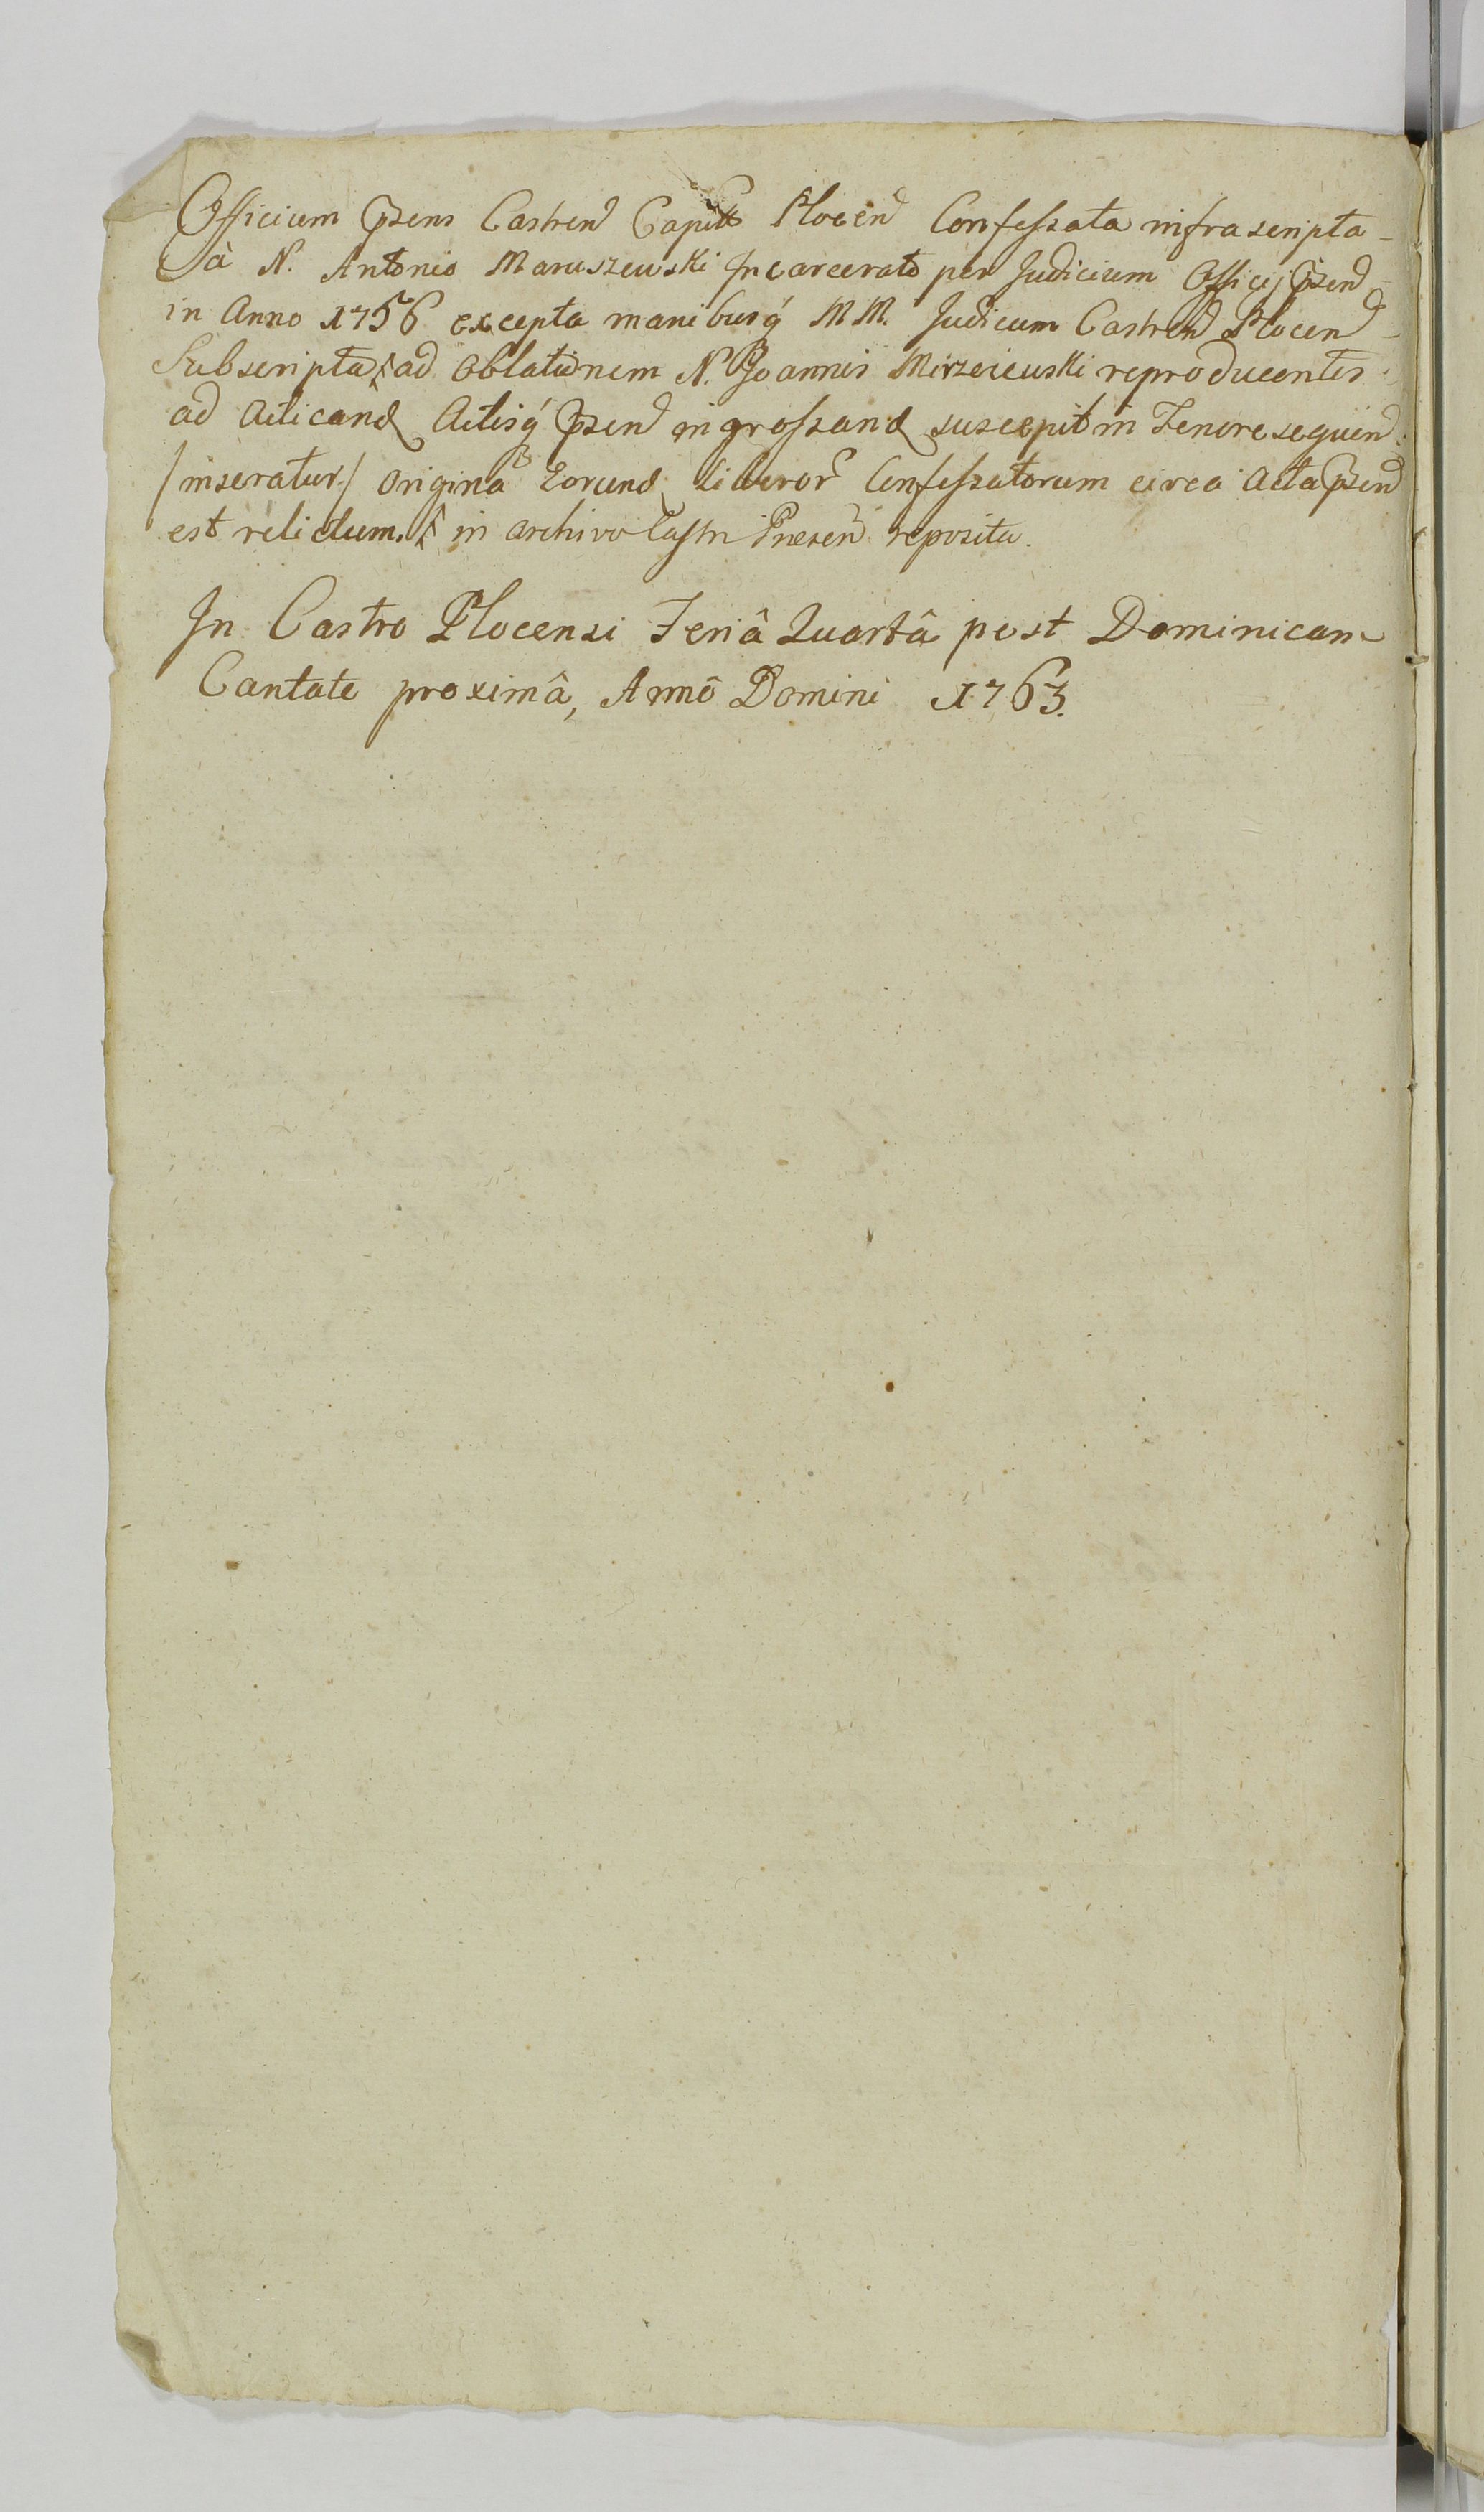 Officium Pszens Castren Capitt Plocen Confessata infrascripta
à N. Antonio Maruszewski Incarcerato per Judicium Officij Pszen
in Anno 1756 excepta manibusq̃ MM. Judicum Castren Plocen
Subscripta, ad Oblationem N. Joannis Mirzeiewski reproducentis
ad Acticand Actisq̃ Pszen ingrossand suscepit in Tenore sequen.
/inseratur./ Origina Eorund Confessatorum circa Acta Pszen
est relictum. in archivo Castri reposita.
In Castro Plocensi Feriâ Quartâ post Dominicam
Cantate proximâ, Annô Domini 1763.